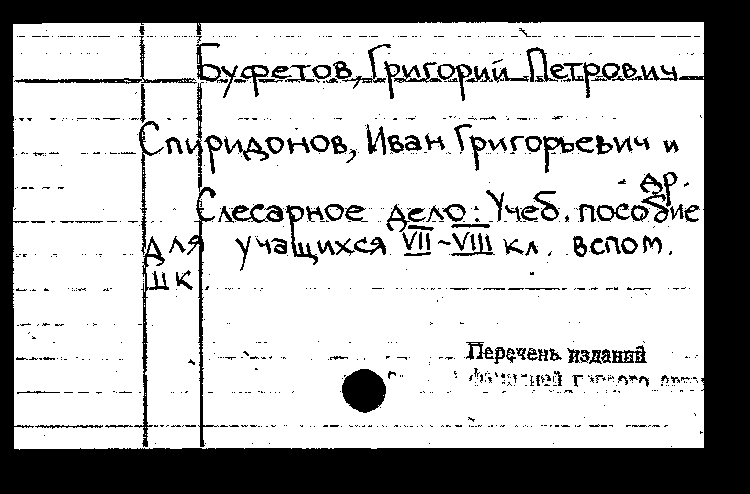 Буфетов, Григорий Петрович
Спиридонов, Иван Григорьевич и
др.
Слесарное дело: Учеб. пособие
для учащихся VII-VIII кл. вспом.
шк
Перечень изданий
фамилией первого